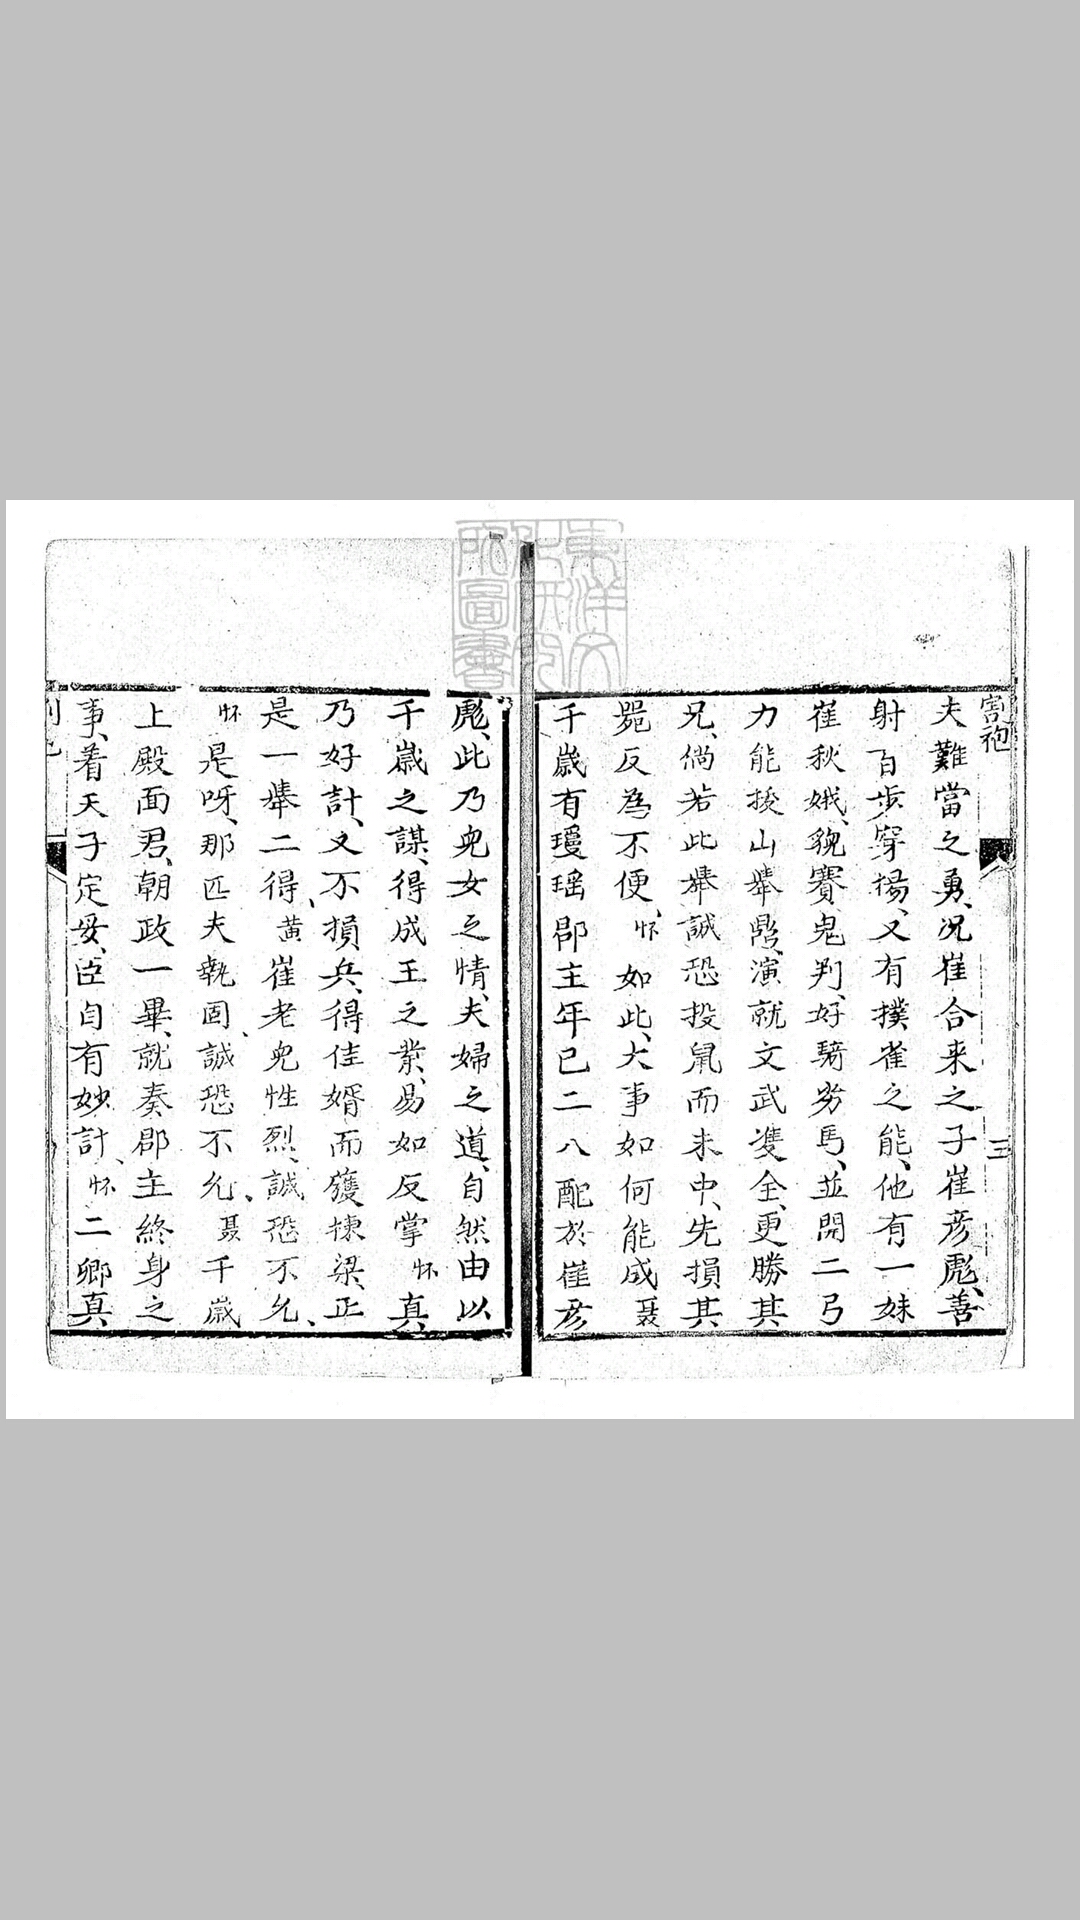 割袍
三
夫難當之勇、况崔合来之子崔彦彪、善
射百步穿揚、又有撲雀之能、他有一妹
崔秋娥、貌賽鬼判、好騎劣馬、並開二弓
力能拔山舉鼎、演就文武雙全、更勝其
兄、倘若此舉誠恐投鼠而未中、先損其
器反為不便 怀 如此、大事如何能成 聂
千歲有瓊瑶郡主年已二八配於崔彦
彪、此乃兒女之情、夫婦之道、自然由以
千歲之謀、得成王之業、易如反掌 怀 真、
乃好計、又不損兵、得佳婿而獲棟梁、正
是一舉二得、黄 崔老兒性烈、誠恐不允、
怀 是呀、那匹夫執固、誠恐不允、聂 千歲
上殿面君、朝政一畢、就奏郡主終身之
事、着天子定妥、臣自有妙計、怀 二卿真、
東洋文化研究所圖書